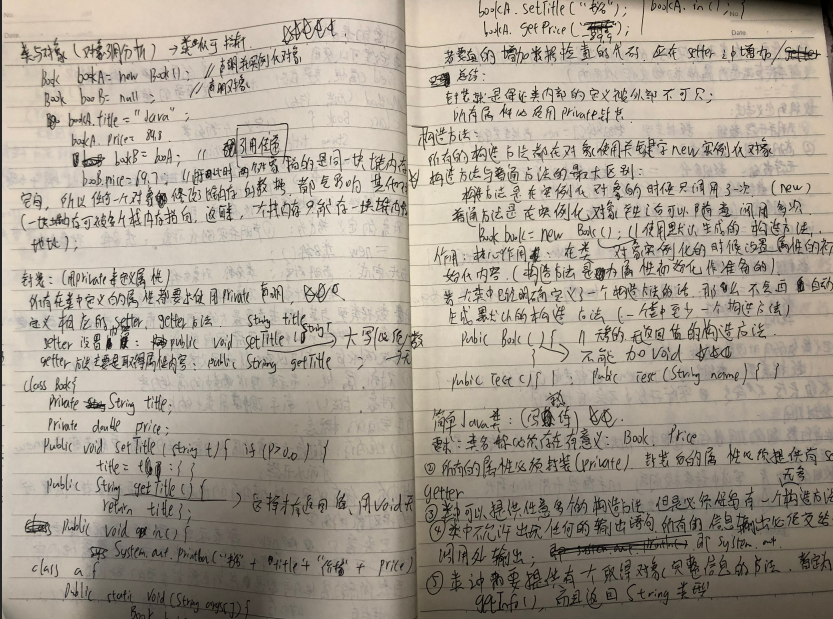 类与对象（对象引用分析）→ 类似于指针
Book bookA = new Book(); // 声明并实例化对象
Book booB = null; // 声明对象
bookA.title = "Java";
bookA.price =
bookB = booA; // 引用传递
booB.price = 69.7; // 此时两个对象指的是同一块堆内存
空间，所以任何一个对象修改了堆内存的数据，都会影响其他
（一块堆内存可被多个栈内存指向，这时，一个栈内存只能存一块堆内存
地址）;
封装：（用private来定义属性）
所有在类中定义的属性都要上使用private声明，
定义相应的setter, getter方法. string title
setter设置: public void setTitle(String t) → 大写 参数
getter方法主要是取得属性内容: public String getTitle
class Book{
Private String title;
Private double price;
Public void setTitle (string t){ if (p>0.0) {
title = t; } }
public String getTitle() {
return title; } 返回值、用void
Public void in() {
System.out.println("书名" + title + "价格" + price)
class a {
Public static void (String args[]) {
bookA.setTitle("书名"); bookA.in(); }
bookA.getPrice(
若要真的增加数据检查的代码，应在setter之中增加
总结:
封装就是保证类内部的定义被外部不可见;
所有属性必须用private封装.
构造方法:
所有的构造方法都在对象使用关键字new实例化对象
构造方法与普通方法的最大区别:
构造方法是在实例化对象的时候只调用了一次 (new)
普通方法是在实例化对象之后可以随意调用多次.
Book book = new Book(); // 使用默认生成的构造方法.
作用: 核心作用 在类对象实例化的时候设置属性的初
始化内容.（构造方法是为属性初始化作准备的）
若一个类中已经明确定义了一个构造方法的话，那么不会再自动
生成默认的构造方法（一个类中至少一个构造方法）
Public Book() { // 无返回值的构造方法.
} → 不能加void
public Test() { } ; Public Test(String name) { }
简单Java类:
要求: 类名称必须存在有意义: Book、Price
② 所有的属性必须封装(private)，封装后的属性必须提供有
getter
③ 类中可以提供任意多个的构造方法，但是必须保留有一个无参构造方法
④ 类中不允许出现任何的输出语句，所有的信息输出必须交给
调用处输出: system.out
⑤ 类中需要提供有一个取得对象完整信息的方法，暂定为
getInfo()，而且返回String类型